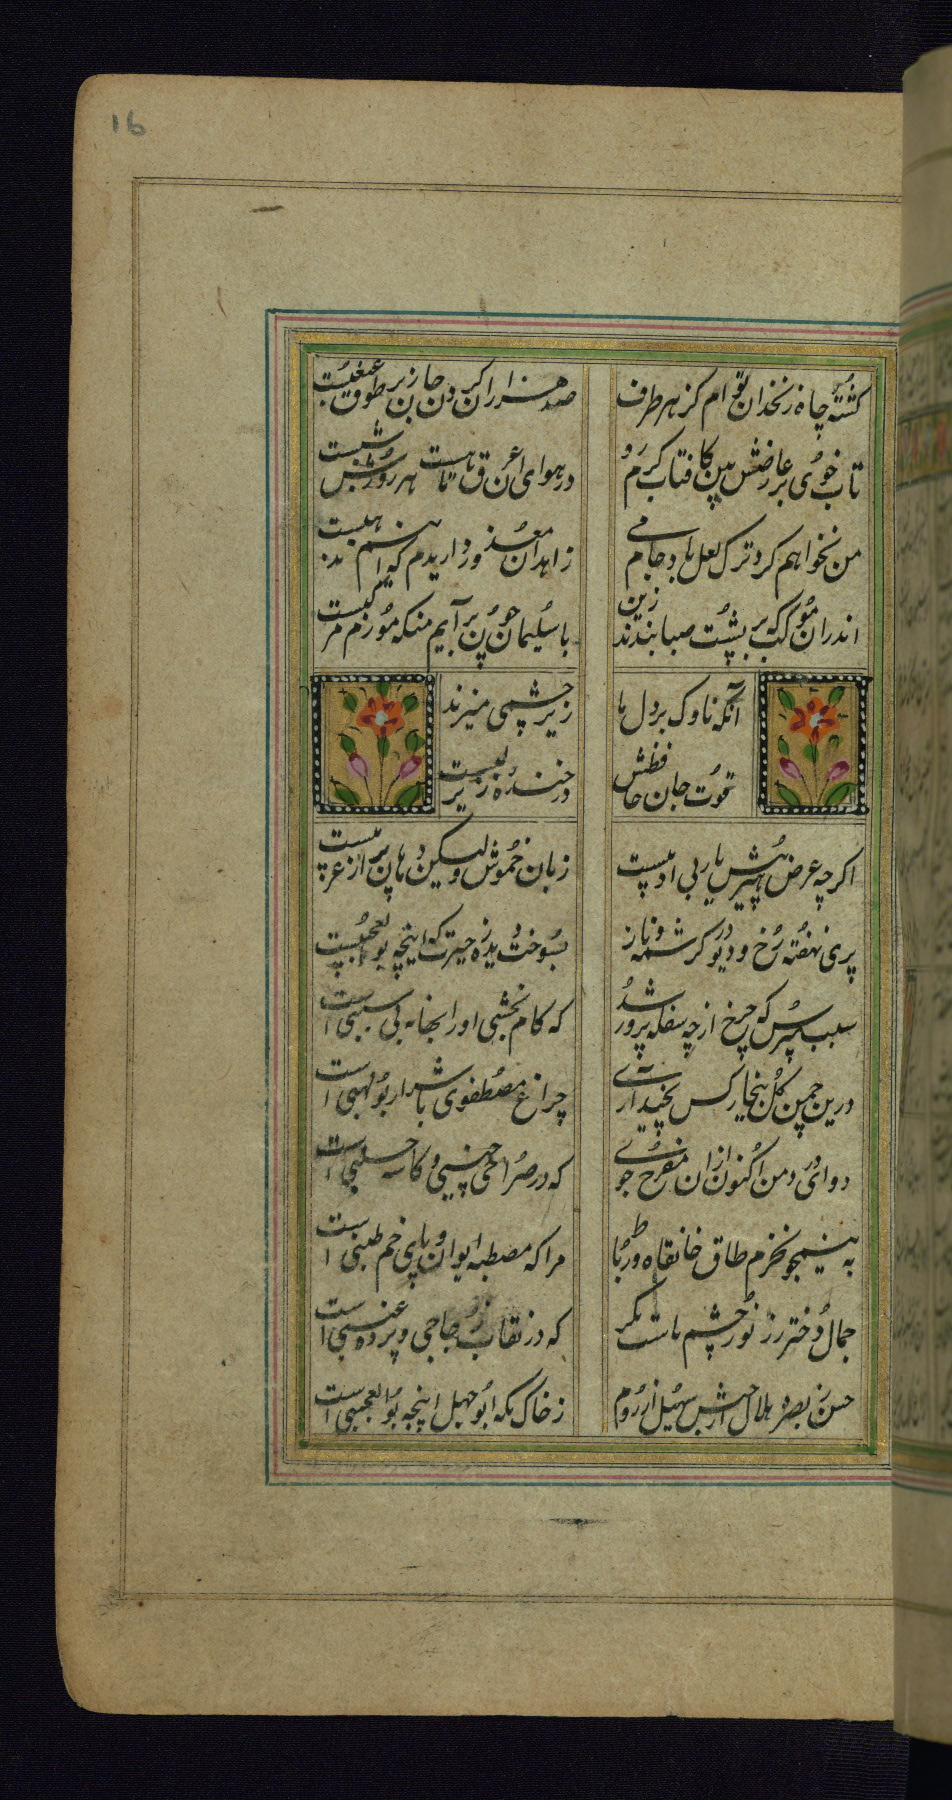 16
کشتهٔ چاه زنخدان توام کز هر طرف
صد هزاران گردن جان زیر طوق غبغبست
تاب خوی بر عارضش بین کافتاب گرم رو
در هوای آن عرق تا هست هر روزش تبست
من نخواهم کرد ترک لعل یار و جام می
زاهدان معذور داریدم که اینم مذهبست
اندران موکب که بر پشت صبا بندند زین
با سلیمان چون برآیم من که مورم مرکبست
آنکه ناوک بر دل ما
زیر چشمی میزند
قوت جان حافظش
در خنده زیر لبست
اگر چه عرض هنر پیش یار بی ادبیست
زبان خموش ولیکن دهان پر از عربیست
پری نهفته رخ و دیو در کرشمه و ناز
بسوخت دیده ز حیرت که اینچه بوالعجبیست
سبب مپرس که چرخ از چه سفله پرور شد
که کام بخشی او را بهانه بی سببی است
درین چمن گل بیخار کس نچید آری
چراغ مصطفوی با شرار بولهبی است
دوای درد من اکنون از ان مفرح جوی
که در صراحی چینی و کاسه حلبی است
به نیم جو نخرم طاق خانقاه و رباط
مرا که مصطبه ایوان و پای خم طنبی است
جمال دختر رز نور چشم ماست مگر
که در نقاب زجاجی و پرده عنبی است
حسن ز بصره بلال از حبش سهیل از روم
ز خاک مکه ابوجهل اینچه بوالعجبی است